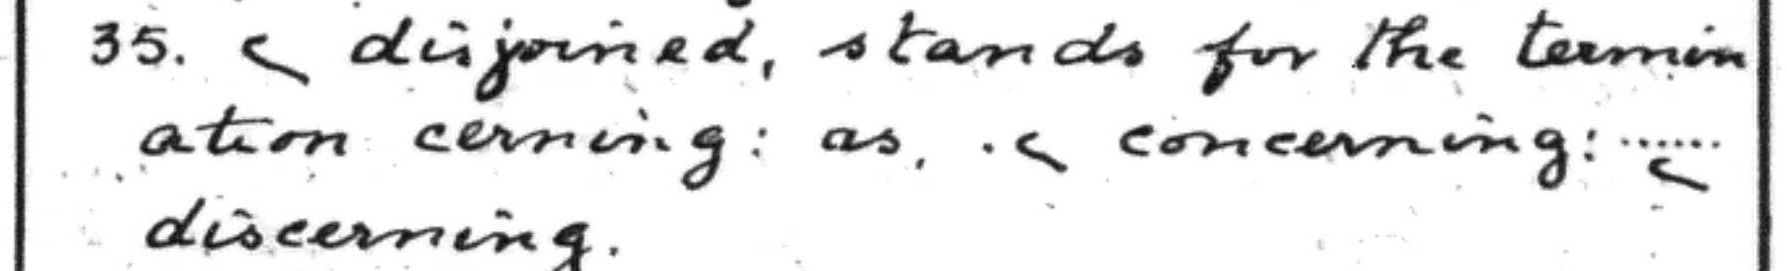 35. disjoined, stands for the termin
ation cerning: as, concerning:
discerning.